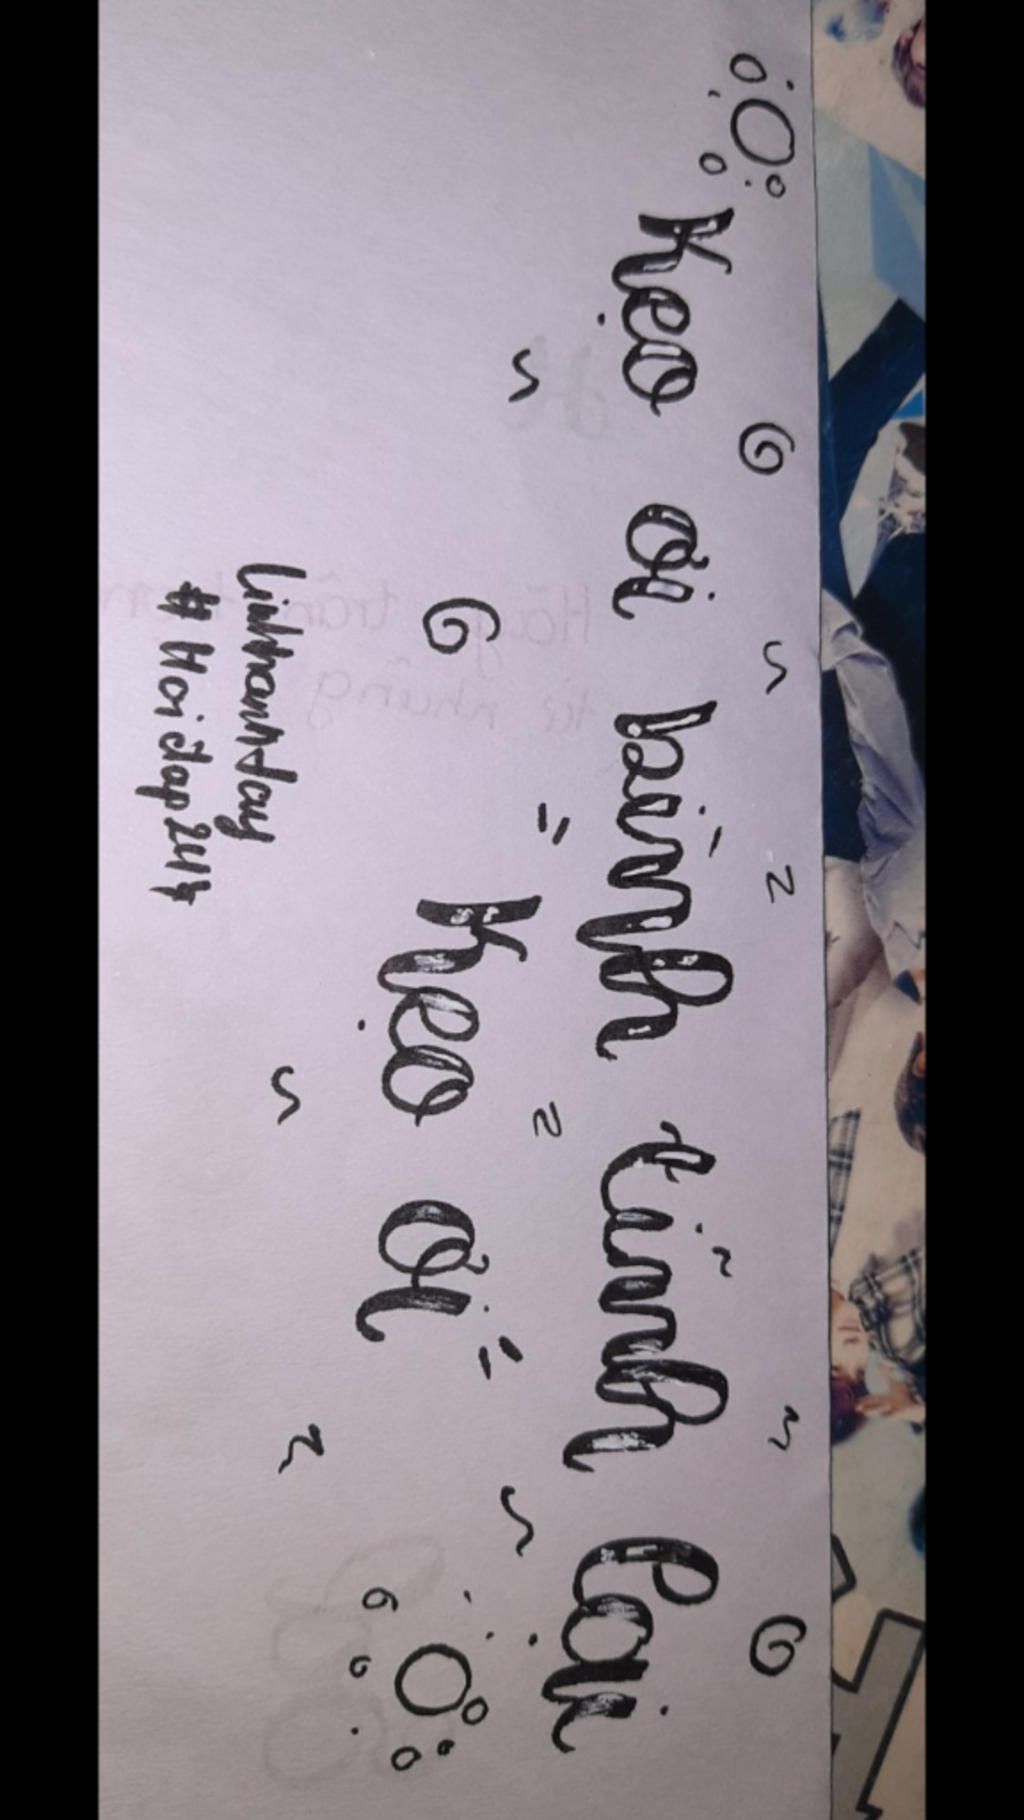 Kẹo ơi bình tĩnh lại
Kẹo ơi
linhhanhday
# Hoidap247